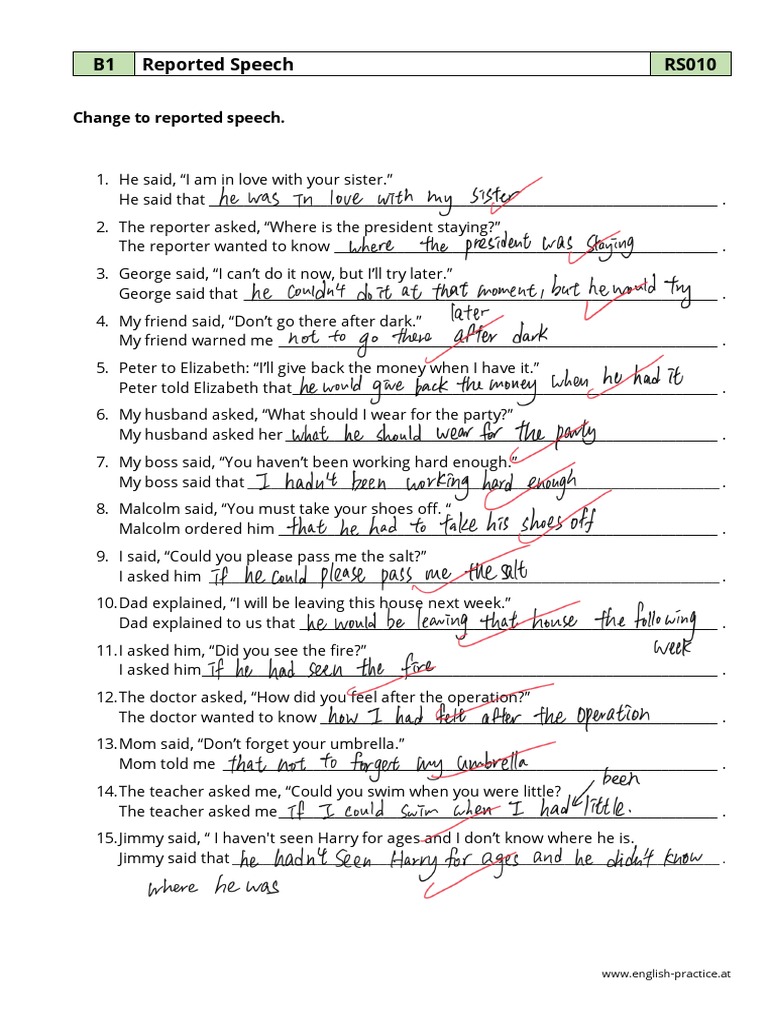 B1 Reported Speech RS010
Change to reported speech.
1. He said, “I am in love with your sister.”
He said that he was in love with my sister.
2. The reporter asked, “Where is the president staying?”
The reporter wanted to know where the president was staying.
3. George said, “I can’t do it now, but I’ll try later.”
George said that he couldn't do it at that moment, but he would try.
later
4. My friend said, “Don’t go there after dark.”
My friend warned me not to go there after dark.
5. Peter to Elizabeth: “I’ll give back the money when I have it.”
Peter told Elizabeth that he would give back the money when he had it.
6. My husband asked, “What should I wear for the party?”
My husband asked her what he should wear for the party.
7. My boss said, “You haven’t been working hard enough.”
My boss said that I hadn't been working hard enough.
8. Malcolm said, “You must take your shoes off. “
Malcolm ordered him that he had to take his shoes off.
9. I said, “Could you please pass me the salt?”
I asked him if he could please pass me the salt.
10. Dad explained, “I will be leaving this house next week.”
Dad explained to us that he would be leaving that house the following.
week
11. I asked him, “Did you see the fire?”
I asked him if he had seen the fire.
12. The doctor asked, “How did you feel after the operation?”
The doctor wanted to know how I had felt after the operation.
13. Mom said, “Don’t forget your umbrella.”
Mom told me that not to forget my umbrella.
been
14. The teacher asked me, “Could you swim when you were little?
The teacher asked me if I could swim when I had little. .
15. Jimmy said, “ I haven't seen Harry for ages and I don’t know where he is.
Jimmy said that he hadn't seen Harry for ages and he didn't know.
where he was
www.english-practice.at